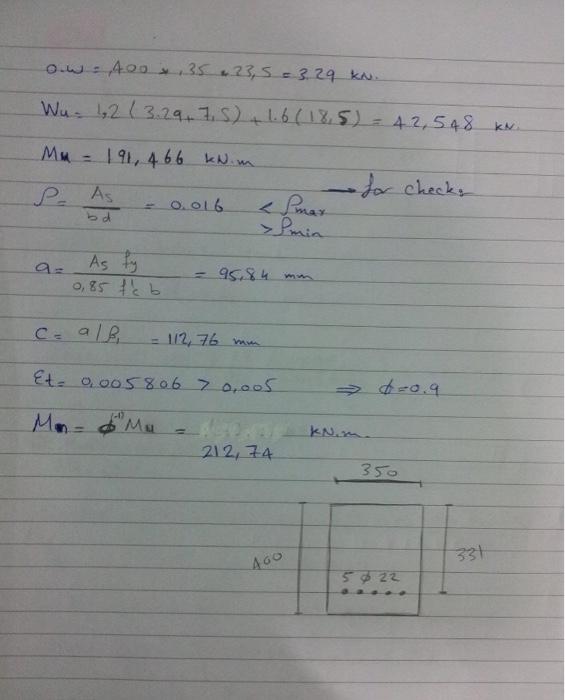 o.w = ,400 * ,35 * 23,5 = 3.29 kN.
Wu = 1,2 ( 3.29 + 7,5 ) + 1.6 ( 18,5 ) = 42,548 kN.
Mu = 191,466 kN.m
ρ = As / bd = 0.016 < ρmax → for checks
> ρmin
a = As fy / 0,85 f'c b = 95,84 mm
C = a/β1 = 112,76 mm
Et = 0,005806 > 0,005 ⇒ ϕ=0.9
Mn = ϕ(-1) Mu = kN.m.
212,74
350
400
331
5 ϕ 22